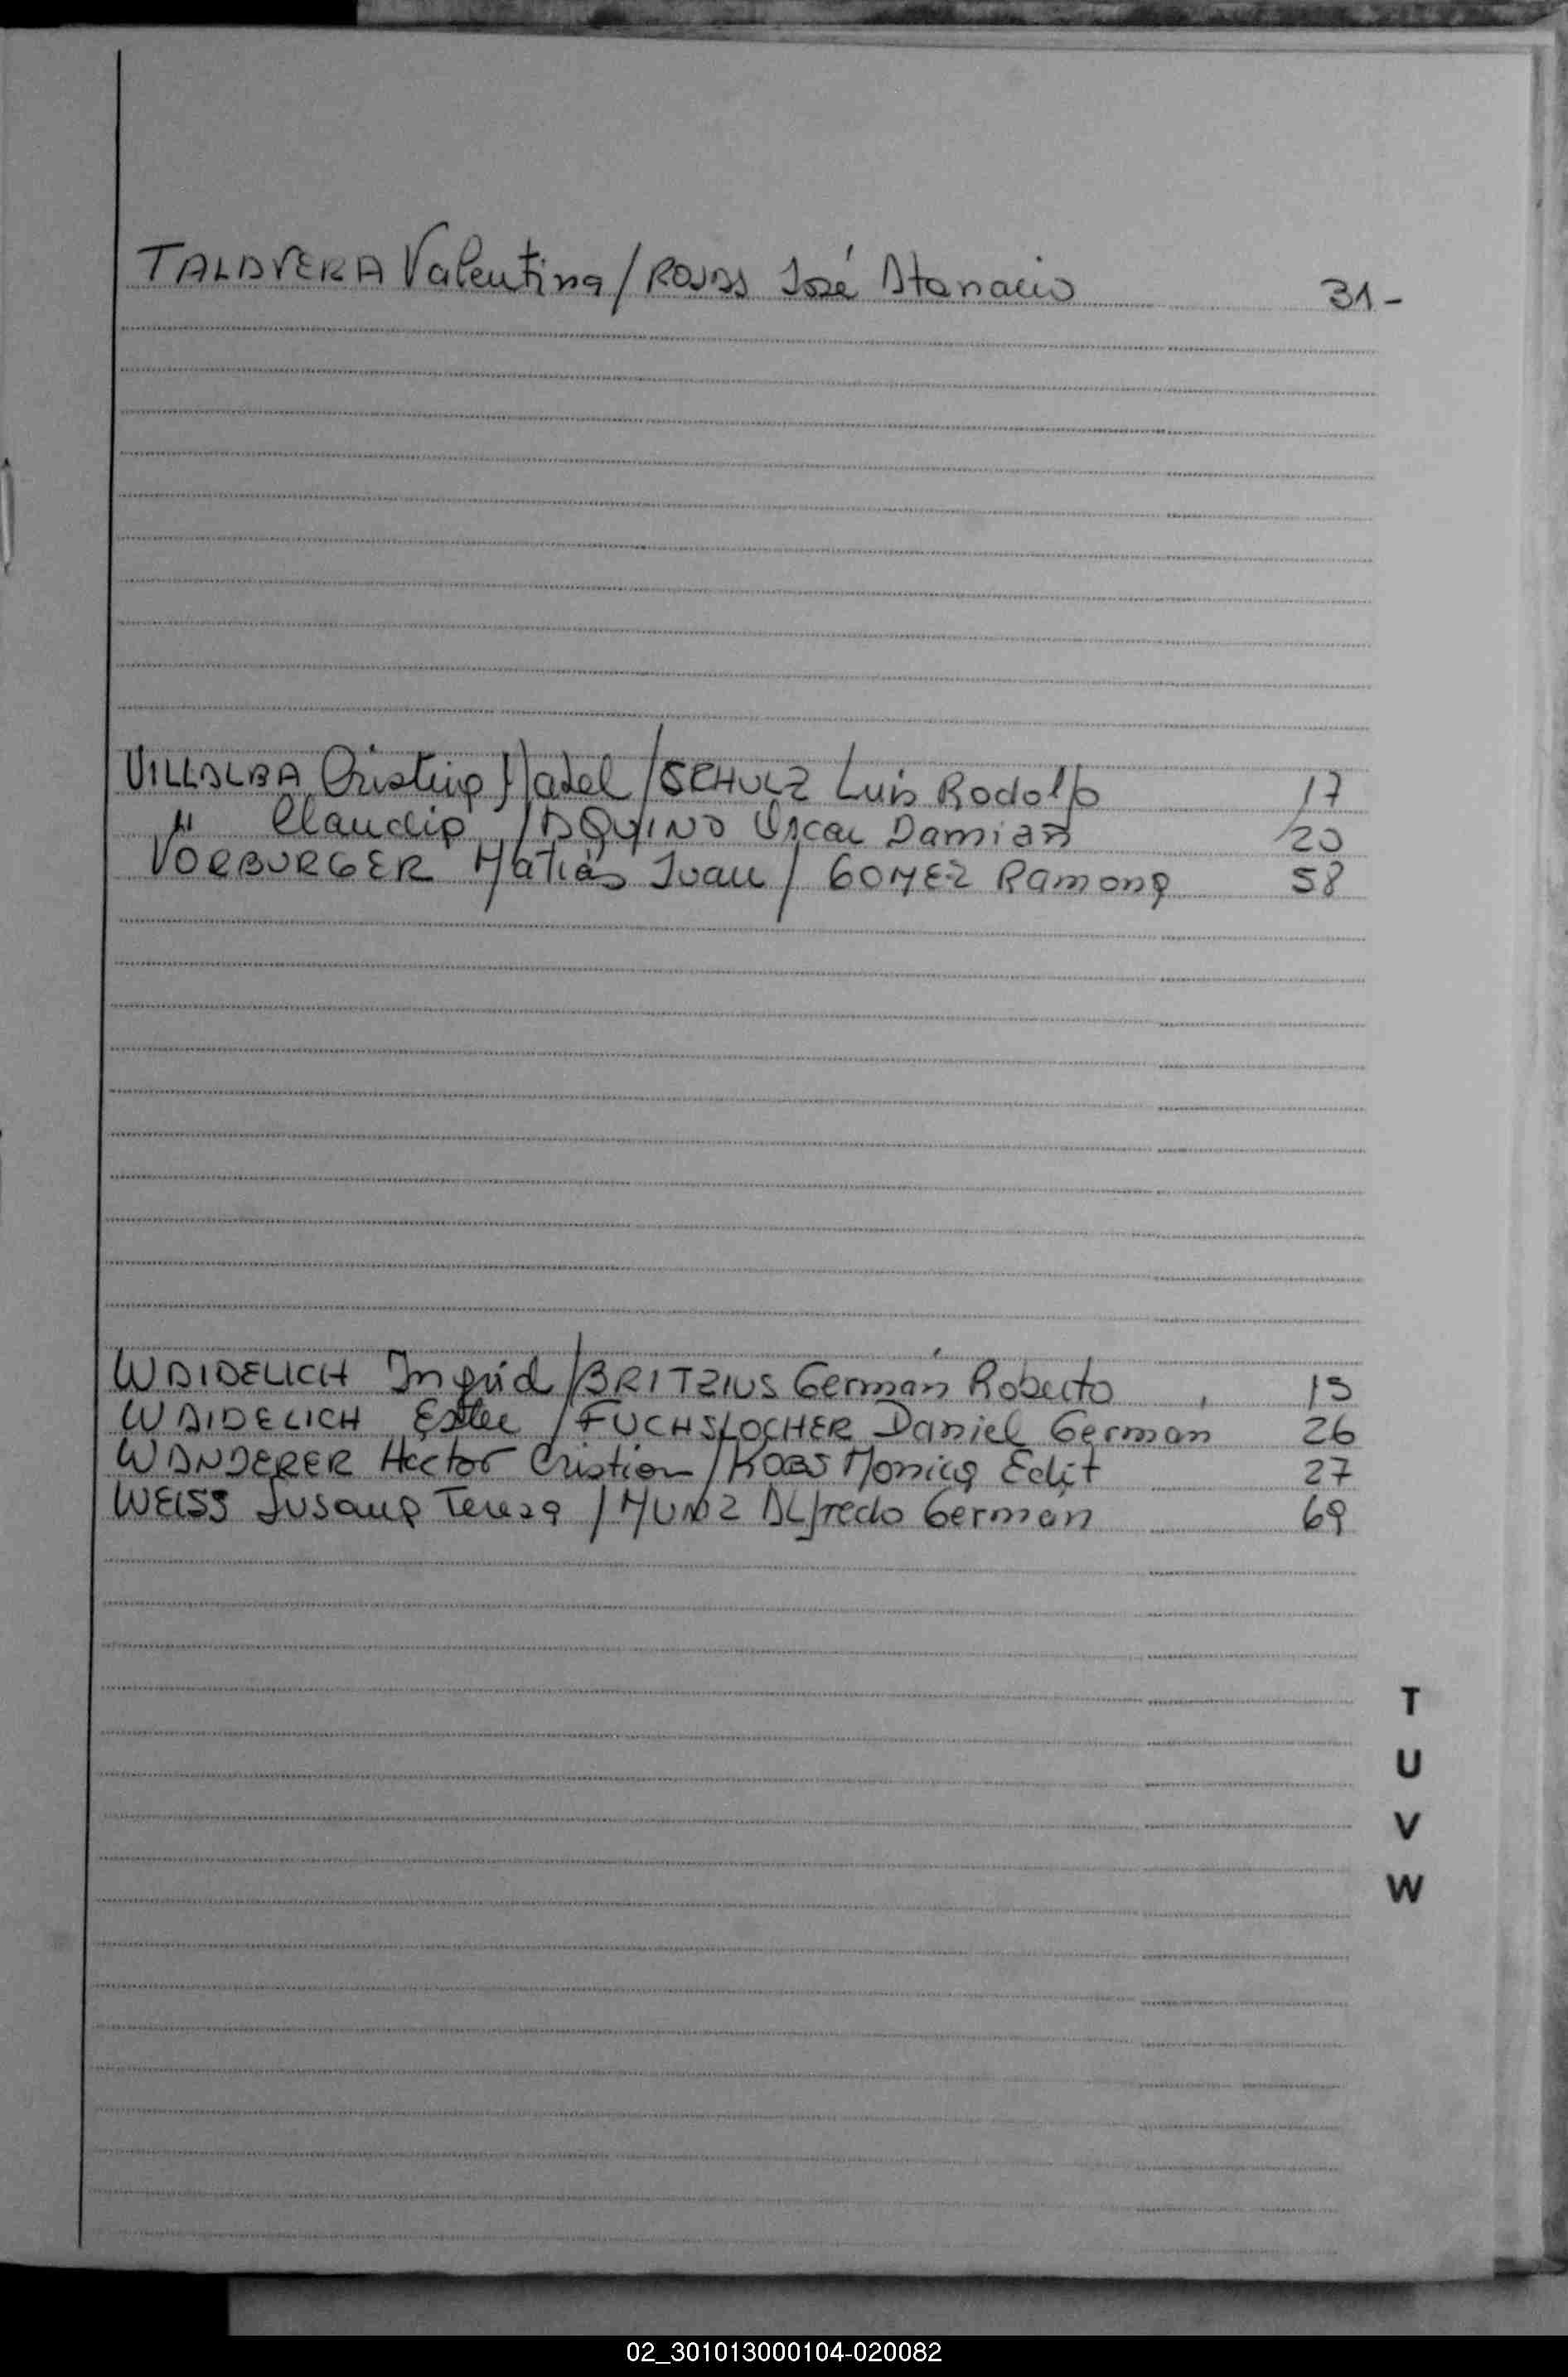 TALAVERA Valentina / ROJAS José Atanacio 31-
VILLALBA Cristina Mabel / SCHULZ Luis Rodolfo 17
" Claudia / AQUINO Oscar Damian 20
VORBURGER Matias Juan / GOMEZ Ramona 58
WAIDELICH Ingrid / BRITZIUS Germán Roberto 15
WAIDELICH Ester / FUCHSLOCHER Daniel German 26
WANDERER Hector Cristian / KOBS Monica Edit 27
WEISS Susana Teresa / MUNOZ Alfredo Germán 69
T
U
V
W
02_301013000104-020082